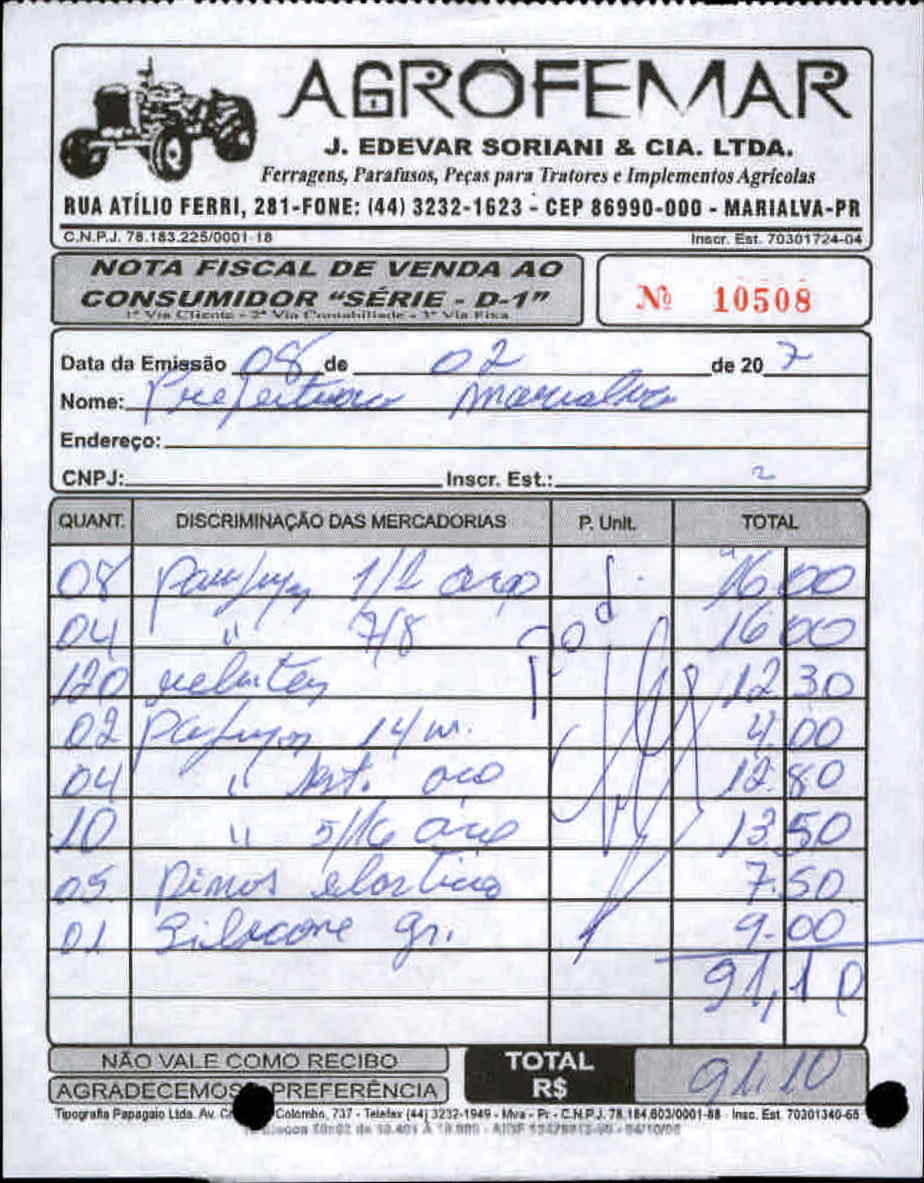 AGROFEMAR
J. EDEVAR SORIANI & CIA. LTDA.
Ferragens, Parafusos, Peças para Tratores e Implementos Agrícolas
RUA ATÍLIO FERRI, 281-FONE: (44) 3232-1623 - CEP 86990-000 - MARIALVA-PR
C.N.P.J. 78.183.225/0001-18 Inscr. Est. 70301724-04
NOTA FISCAL DE VENDA AO
CONSUMIDOR "SÉRIE - D-1"
1ª Via Cliente - 2ª Via Contabilidade - 3ª Via Fixa
Nº 10508
Data da Emissão 08 de 02 de 20 7
Nome: Prefeitura Marialva
Endereço:
CNPJ: Inscr. Est.:
QUANT. DISCRIMINAÇÃO DAS MERCADORIAS P. Unit. TOTAL
08 1/2 16,00
04 " 7/8 16 00
120 rebites 12 30
02 14 m. 4,00
04 " 12.80
10 " 5/16 13,50
05 Pinos elastico 7.50
01 Silicone gr. 9.00
91,10
NÃO VALE COMO RECIBO
AGRADECEMOS PREFERÊNCIA
TOTAL R$ 91,10
Tipografia Papagaio Ltda. Av. Colombo, 737 - Telefax (44) 3232-1949 - Mva - Pr - C.N.P.J. 78.184.603/0001-88 - Insc. Est. 70301340-65